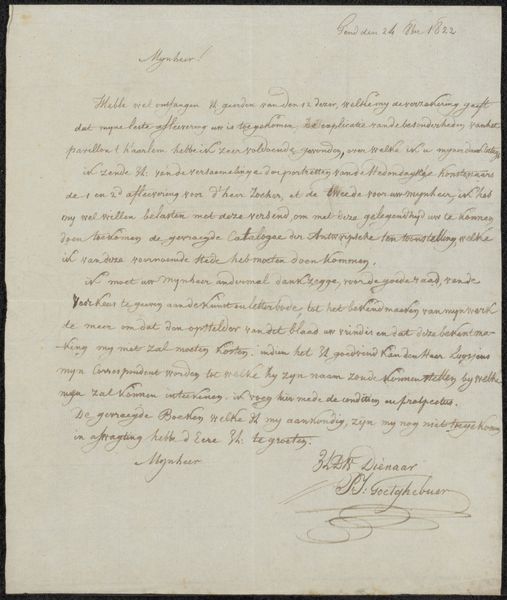 Gend den 24 8br 1822
Mynheer!
Hebbe wel ontfangen U geerden van den 12 dezer, welke my de verzekering geeft
dat myne leste aflevering uw is toegekomen, De explicatie van de besonderheden van het
pavillon t Haarlem hebbe ik zeer voldoende gevonden, over welke ik u myne
ik zende U: van de verzaemelinge der portretten van de Hedendagsche Konstenaars
de 1 en 2d aflevering voor d'heer Zocher, et de tweede voor uw mynheer ik heb
my wel willen belasten met deze versend, om met deze gelegendhyd uw te konnen
doen toekomen de gevraegde Catalogue der Antwerpsche ten toonstelling, welke
ik van deze voornoemde stede heb moeten doen kommen.
ik moet uw mynheer andermal dank zegge, voor de goede raad, van de
voorkeus te geven aan de Kunst en letterbode, tot het bekendmaken van myn werk
te meer om dat den opstelder van dit blaad uw vrind is en dat deze bekentma-
king my niet zal moeten kosten. indien het U goedvend kan den Heer Loosjens
myn Correspondent worden tot welke hy zyn naam zoude kennen stellen by welke
men zal konnen intekenen. ik voeg hier mede de conditien en prospectus.
De gevraegde Boeken welke U my aankondigt, zyn my nog niet toegekomen
in afwagting hebbe d'Eere U: te groeten.
Mynheer
Dienaar
P.J: Goetghebuer